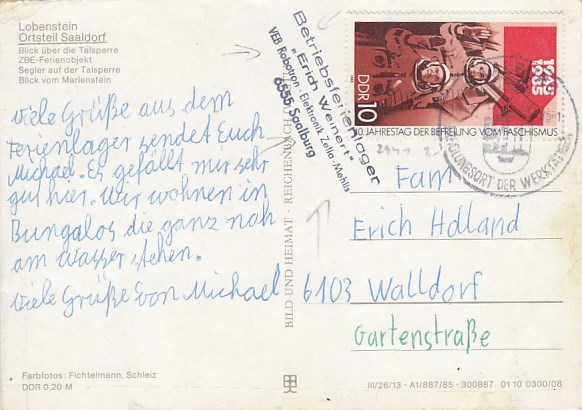 Lobenstein
Ortsteil Saaldorf
Blick über die Talsperre
ZBE-Ferienobjekt
Segler auf der Talsperre
Blick vom Marienstein
viele Grüße aus dem
Ferienlager sendet Euch
Michael. Es gefällt mir sehr
gut hier. Wir wohnen in
Bungalos die ganz nah
am Wasser stehen.
Viele Grüße von Michael
Farbfotos: Fichtelmann, Schleiz
DDR 0,20 M
BILD UND HEIMAT · REICHENBACH
Betriebsferienlager
"Erich Weinert"
VEB Robotron-Elektronik Zella-Mehlis
6555 Saalburg
DDR 10
1945
1985
40. JAHRESTAG DER BEFREIUNG VOM FASCHISMUS
DER WERKTÄTIGEN
Fam
Erich Holland
6103 Walldorf
Gartenstraße
III/26/13 · A1/887/85 · 300887 01 10 0300/08